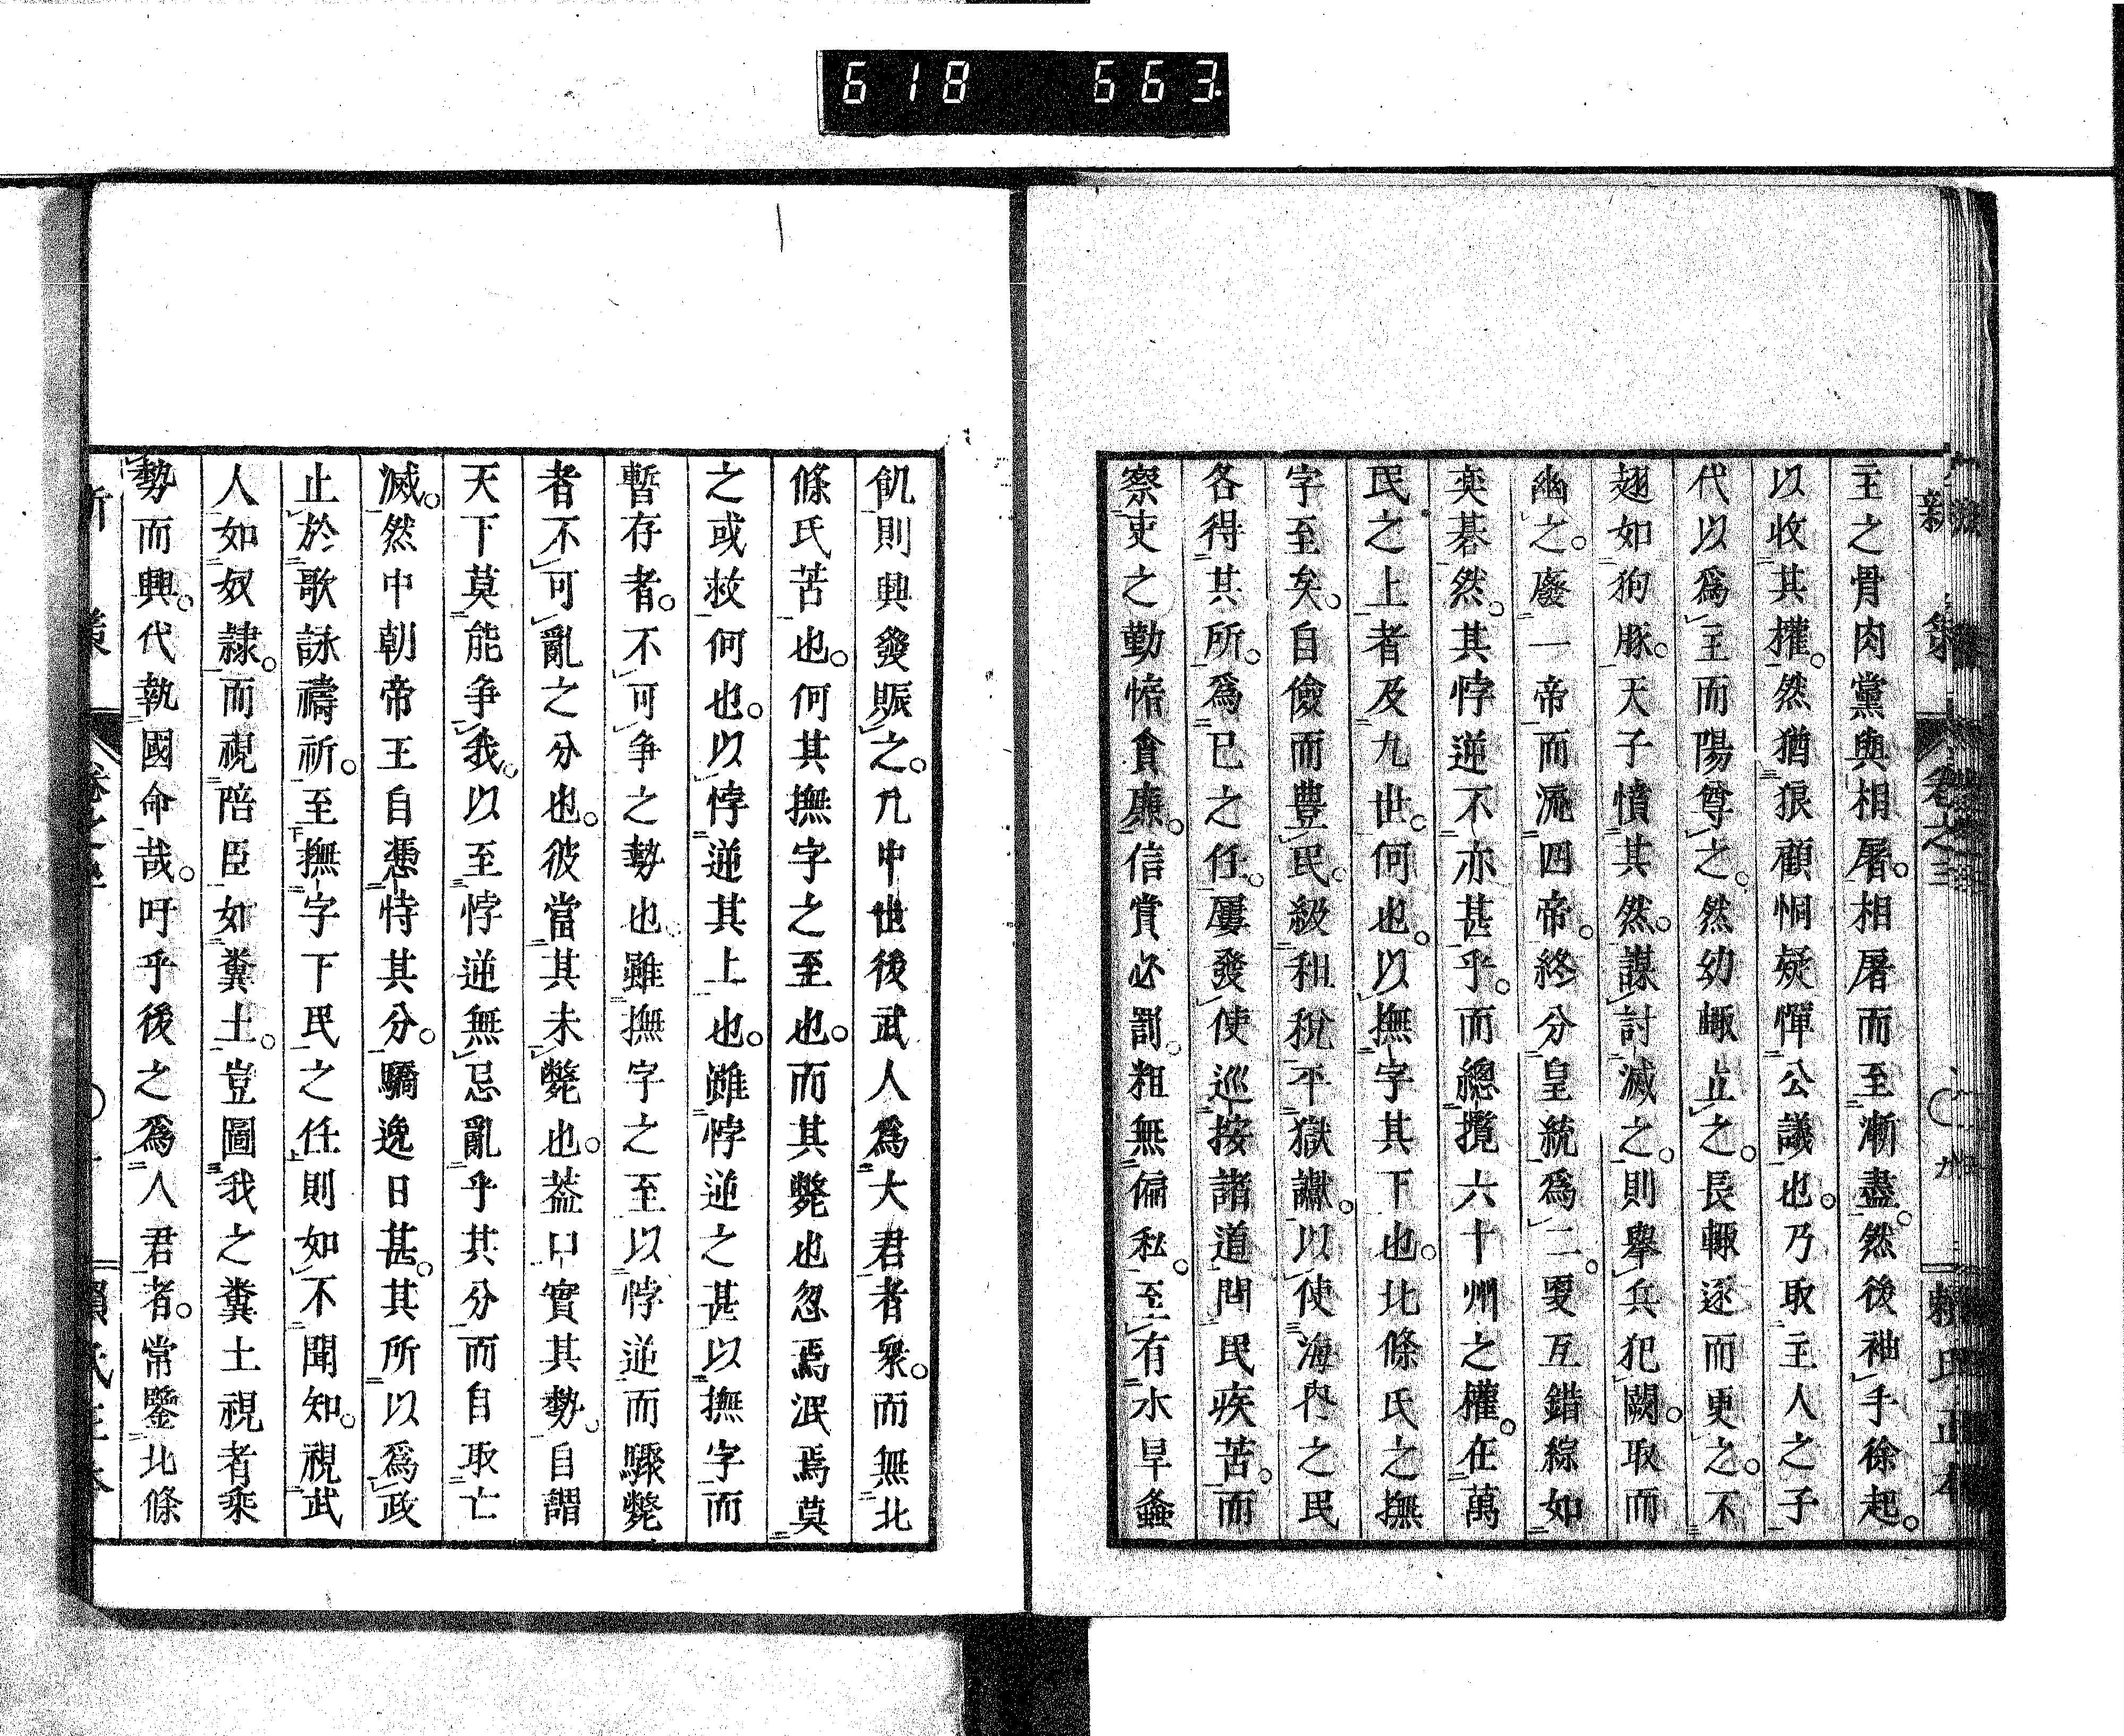 618 663.
新策 卷之三 九 賴氏正本
主之骨肉黨與相屠。相屠而至漸盡。然後袖手徐起。
以收其權。然猶狼顧恫疑憚公議也。乃取主人之子
代以爲主而陽尊之。然幼輙立之。長輙逐而更之。不
翅如狗豚。天子憤其然。謀討滅之。則舉兵犯闕。取而
幽之。廢一帝而流四帝。終分皇統爲二。更互錯綜如
奕碁然。其悖逆不亦甚乎。而總攬六十州之權。在萬
民之上者及九世。何也。以撫字其下也。北條氏之撫
字至矣。自儉而豊民。級租稅平獄讞。以使海內之民
各得其所。爲己之任。屢發使巡按諸道問民疾苦。而
察吏之勤惰貪廉。信賞必罰。粗無偏私。至有水旱螽
飢則興發賑之。凡中世後武人爲大君者衆。而無北
條氏苦也。何其撫字之至也。而其斃也忽焉泯焉莫
之或救何也。以悖逆其上也。雖悖逆之甚以撫字而
暫存者。不可爭之勢也。雖撫字之至以悖逆而驟斃
者不可亂之分也。彼當其未斃也。葢口實其勢。自謂
天下莫能爭我。以至悖逆無忌亂乎其分而自取亡
滅。然中朝帝王自憑恃其分。驕逸日甚。其所以爲政
止於歌詠禱祈。至撫字下民之任則如不聞知。視武
人如奴隷。而視陪臣如糞土。豈圖我之糞土視者乘
勢而興。代執國命哉。吁乎後之爲人君者。常鑒北條
新策 卷之三 賴氏正本